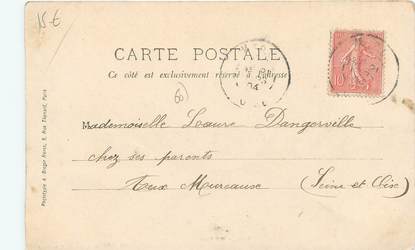 15 €
CARTE POSTALE
Ce côté est exclusivement réservé à l'adresse
60
10
04
Mademoiselle Laure Dangerville
chez ses parents
Aux Mureaux (Seine et Oise)
Phototypie A. Breger Frères, 9, Rue Thénard, Paris